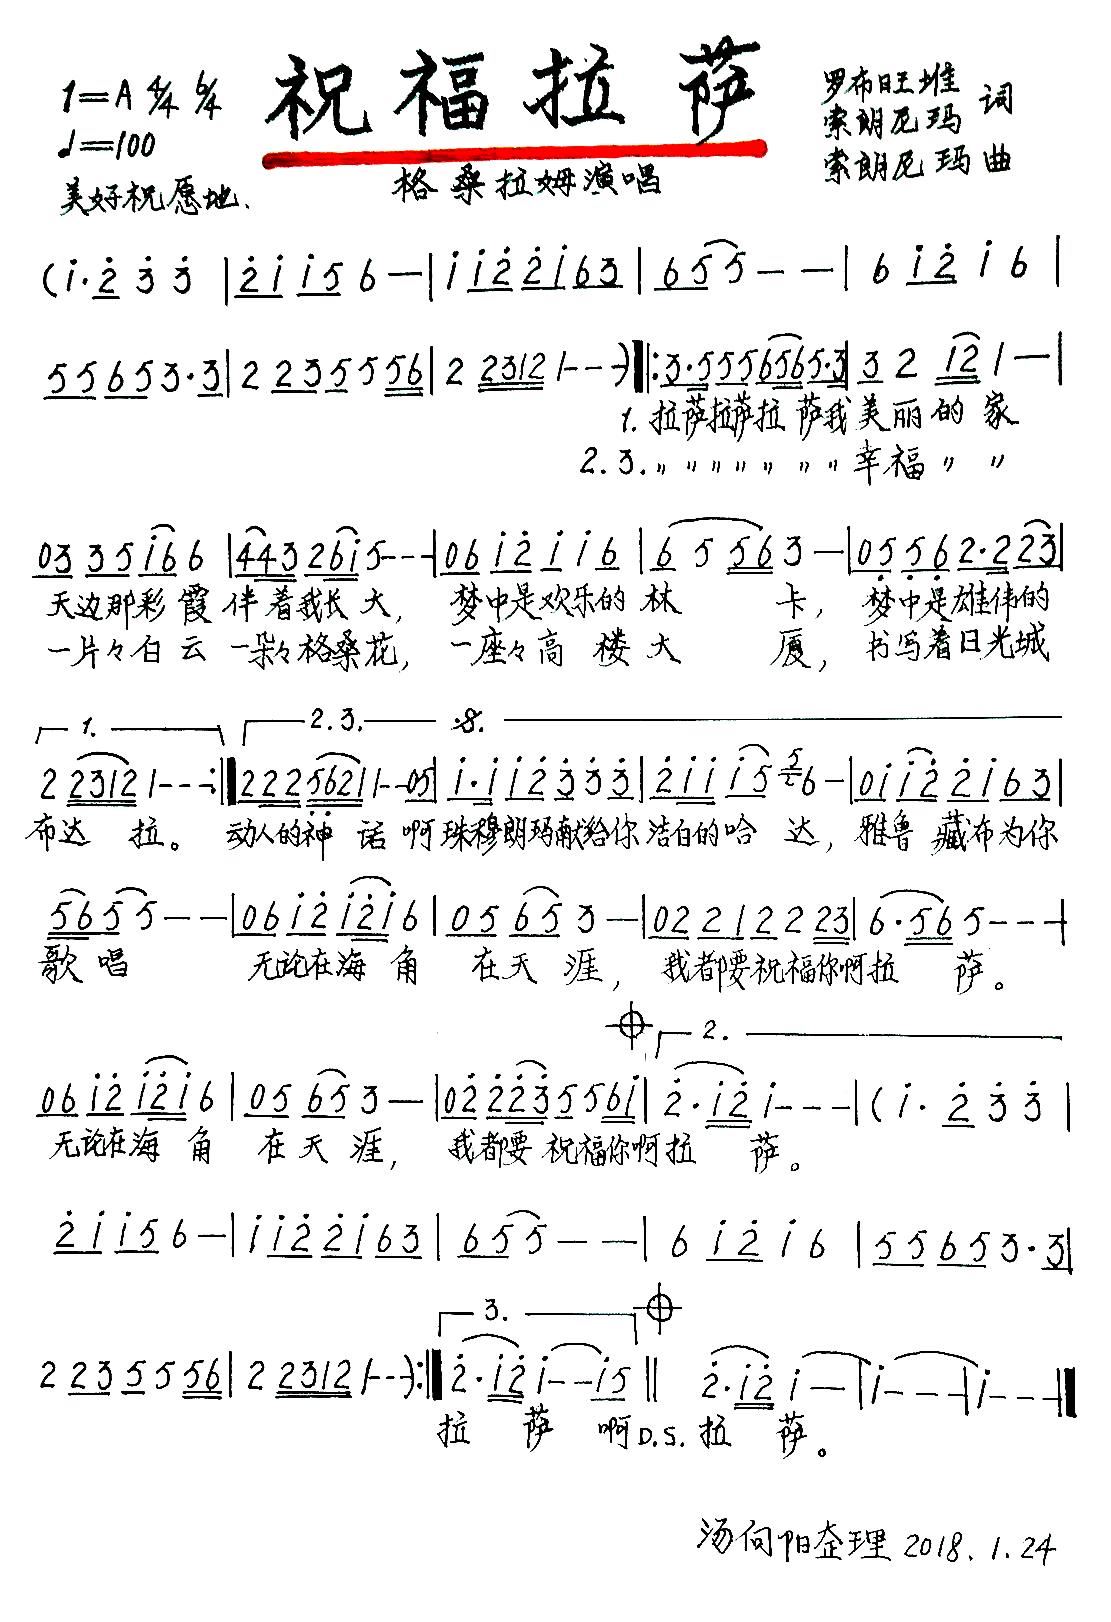 祝福拉萨
1=A 4/4 6/4
♩=100
美好祝愿地.
格桑拉姆演唱
罗布旺堆 词
索朗尼玛
索朗尼玛 曲
(i·2 3 3 | 2i i5 6 — | i i2 2i 63 | 65 5 — — | 6 i2 i 6 |
55 65 3·3 | 2 23 55 56 | 2 2312 1 - - -) ‖: 3·5 55 56 565·3 | 3 2 12 1 — |
1. 拉萨拉萨拉 萨我 美丽的 家
2.3. 〃〃〃〃〃〃〃 幸福〃 〃
03 35 i6 6 | 443 26i 5 - - - | 06 i2 i i 6 | 6 5 56 3 — | 05 56 2·2 23 |
天边那彩霞 伴着我长大, 梦中是欢乐的林 卡, 梦中是雄伟的
一片々白云 一朵々格桑花, 一座々高楼大 厦, 书写着日光城
1. 2.3. 𝄋
2 2312 1 - - - :‖ 222 5621 1 - - 05 | i·i i2 3 3 3 | 2i i i5 5/2 6 — | 0i i2 2i 63 |
布达 拉。 动人的神 话 啊 珠穆朗玛献给你 洁白的哈 达, 雅鲁 藏布为你
5655 — — | 06 i2 i2i 6 | 05 65 3 — | 02 21 22 23 | 6·56 5 - - - |
歌唱 无论在海 角 在天 涯, 我都要祝福你啊拉 萨。
𝄌 2.
06 i2 i2i 6 | 05 65 3 — | 02 223 55 6i | 2·i2 i - - - | (i· 2 3 3 |
无论在海 角 在天 涯, 我都要 祝福你啊拉 萨。
2i i5 6 — | i i2 2i 63 | 65 5 — — | 6 i2 i 6 | 55 65 3·3 |
3. 𝄌
2 23 55 56 | 2 2312 1 - - -) :‖ 2·i2 i - - i5 ‖ 2·i2 i — | i - - - | i - - - ‖
拉 萨 啊 D.S. 拉 萨。
汤向阳整理 2018.1.24